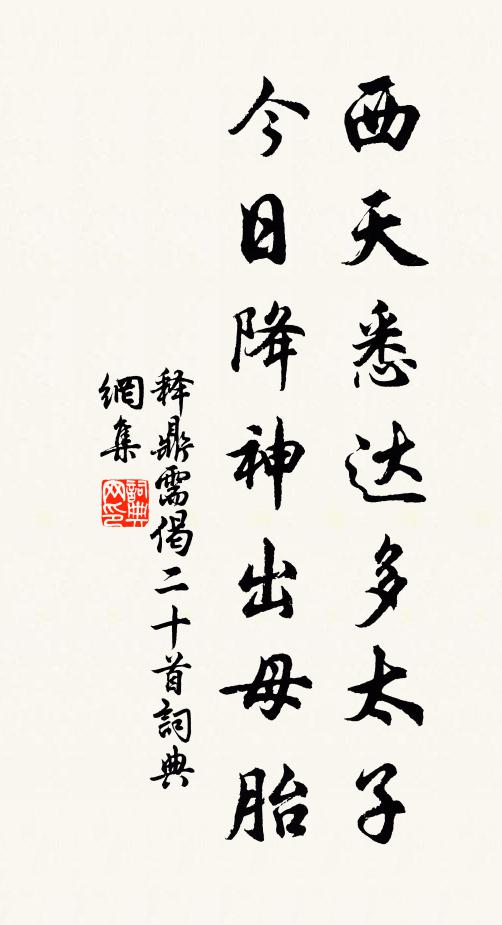 西天悉达多太子
今日降神出母胎
释鼎需偈二十首詞典
網集
詞典网印